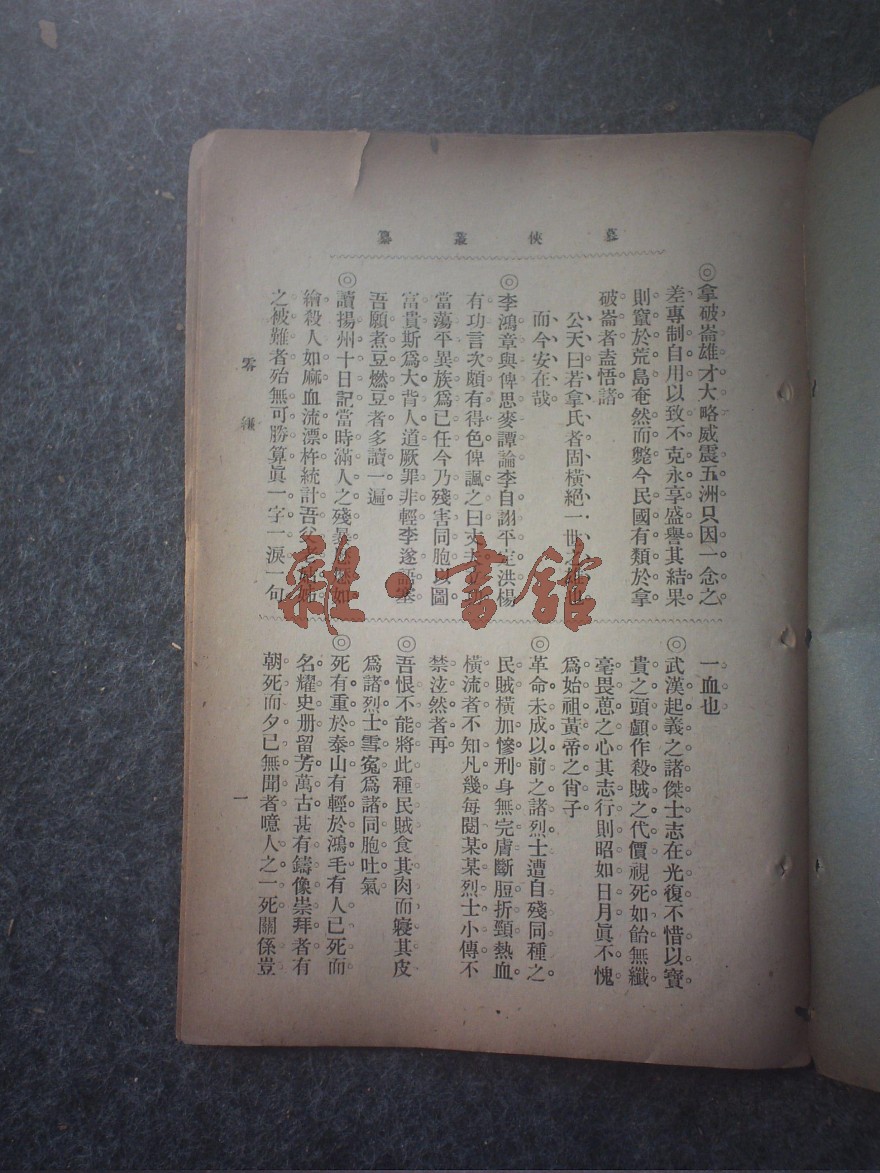 俠叢纂
◎拿破崙雄才大略威震五洲只因一念之
差專制自用以致不克永享盛譽其結果
則竄於荒島奄然而斃今民國有類於拿
破崙者盍悟諸
公天曰若拿氏者固橫絕一世之雄也
而今安在哉
◎李鴻章與俾思麥譚論李自詡平定洪楊
有功言次頗有得色俾諷之曰丈夫
當蕩平異族爲已任今乃殘害同胞以圖
富貴斯爲大背人道厥罪非輕李遂語塞
吾願煮豆燃豆者多讀一遍
◎讀揚州十日記當時滿人之殘暴如
繪殺人如麻血流漂杵統計吾
之被難者殆無可勝算眞一字一淚一句
一血也
◎武漢起義之諸傑士志在光復不惜以寶
貴之頭顱作殺賊之代價視死如飴無纖
毫畏葸之心其志行則昭如日月眞不愧
爲始祖黃帝之肖子
◎革命未成以前之諸烈士遭自殘同種之
民賊橫加慘刑身無完膚斷脰折頸熱血
橫流者不知凡幾每閱某某烈士小傳不
禁泫然者再
◎吾恨不能將此種民賊食其肉而寢其皮
爲諸烈士雪寃爲諸同胞吐氣
◎死有重於泰山有輕於鴻毛有人已死而
名耀史册留芳萬古甚有鑄像崇拜者有
朝死而夕已無聞者噫人之一死關係豈
零縑
一
雜·書館